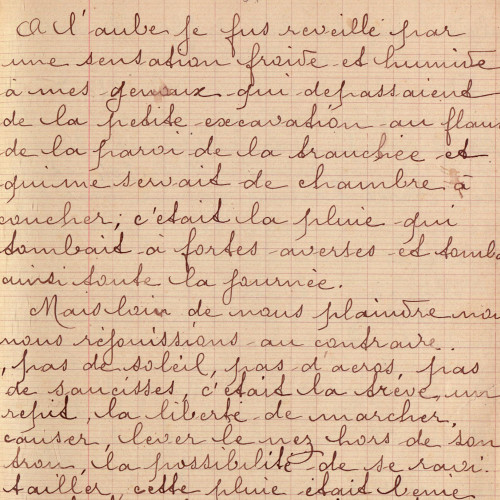 A l'aube je fus reveillé par
une sensation froide et humide
à mes genoux qui depassaient
de la petite excavation au flanc
de la paroi de la tranchée et
qui me servait de chambre à
coucher; c'était la pluie qui
tombait à fortes averses et tomba
ainsi toute la journée.
Mais loin de nous plaindre nous
nous réjouissions au contraire.
, pas de soleil, pas d'aeros, pas
de saucisses, c'était la trève, un
repit, la liberté de marcher,
causer, lever le nez hors de son
trou, la possibilité de se ravi.
tailler, cette pluie était benie